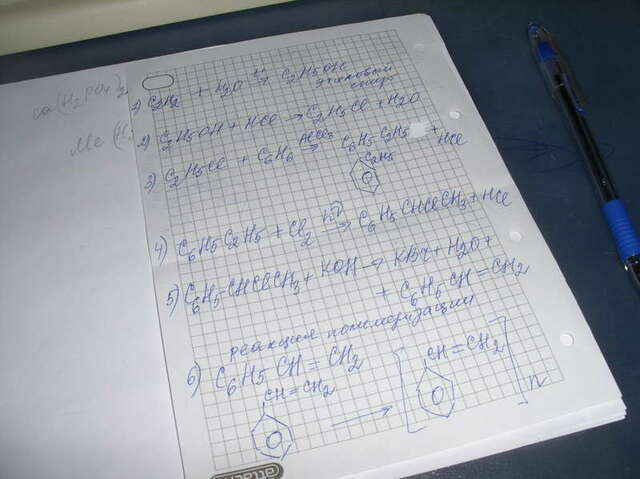 Ca(H2PO4)2
Me(H
1) C2H2 + H2O → C2H5OH
этиловый
спирт
2) C2H5OH + HCl → C2H5Cl + H2O
3) C2H5Cl + C6H6 AlCl3 → C6H5 C2H5 + HCl
C2H5
4) C6H5C2H5 + Cl2 hν → C6H5CHClCH3 + HCl
5) C6H5-CHClCH3 + KOH → KBr + H2O +
+ C6H5CH=CH2
реакция полимеризации
6) C6H5CH=CH2
CH=CH2 → [CH=CH2]n